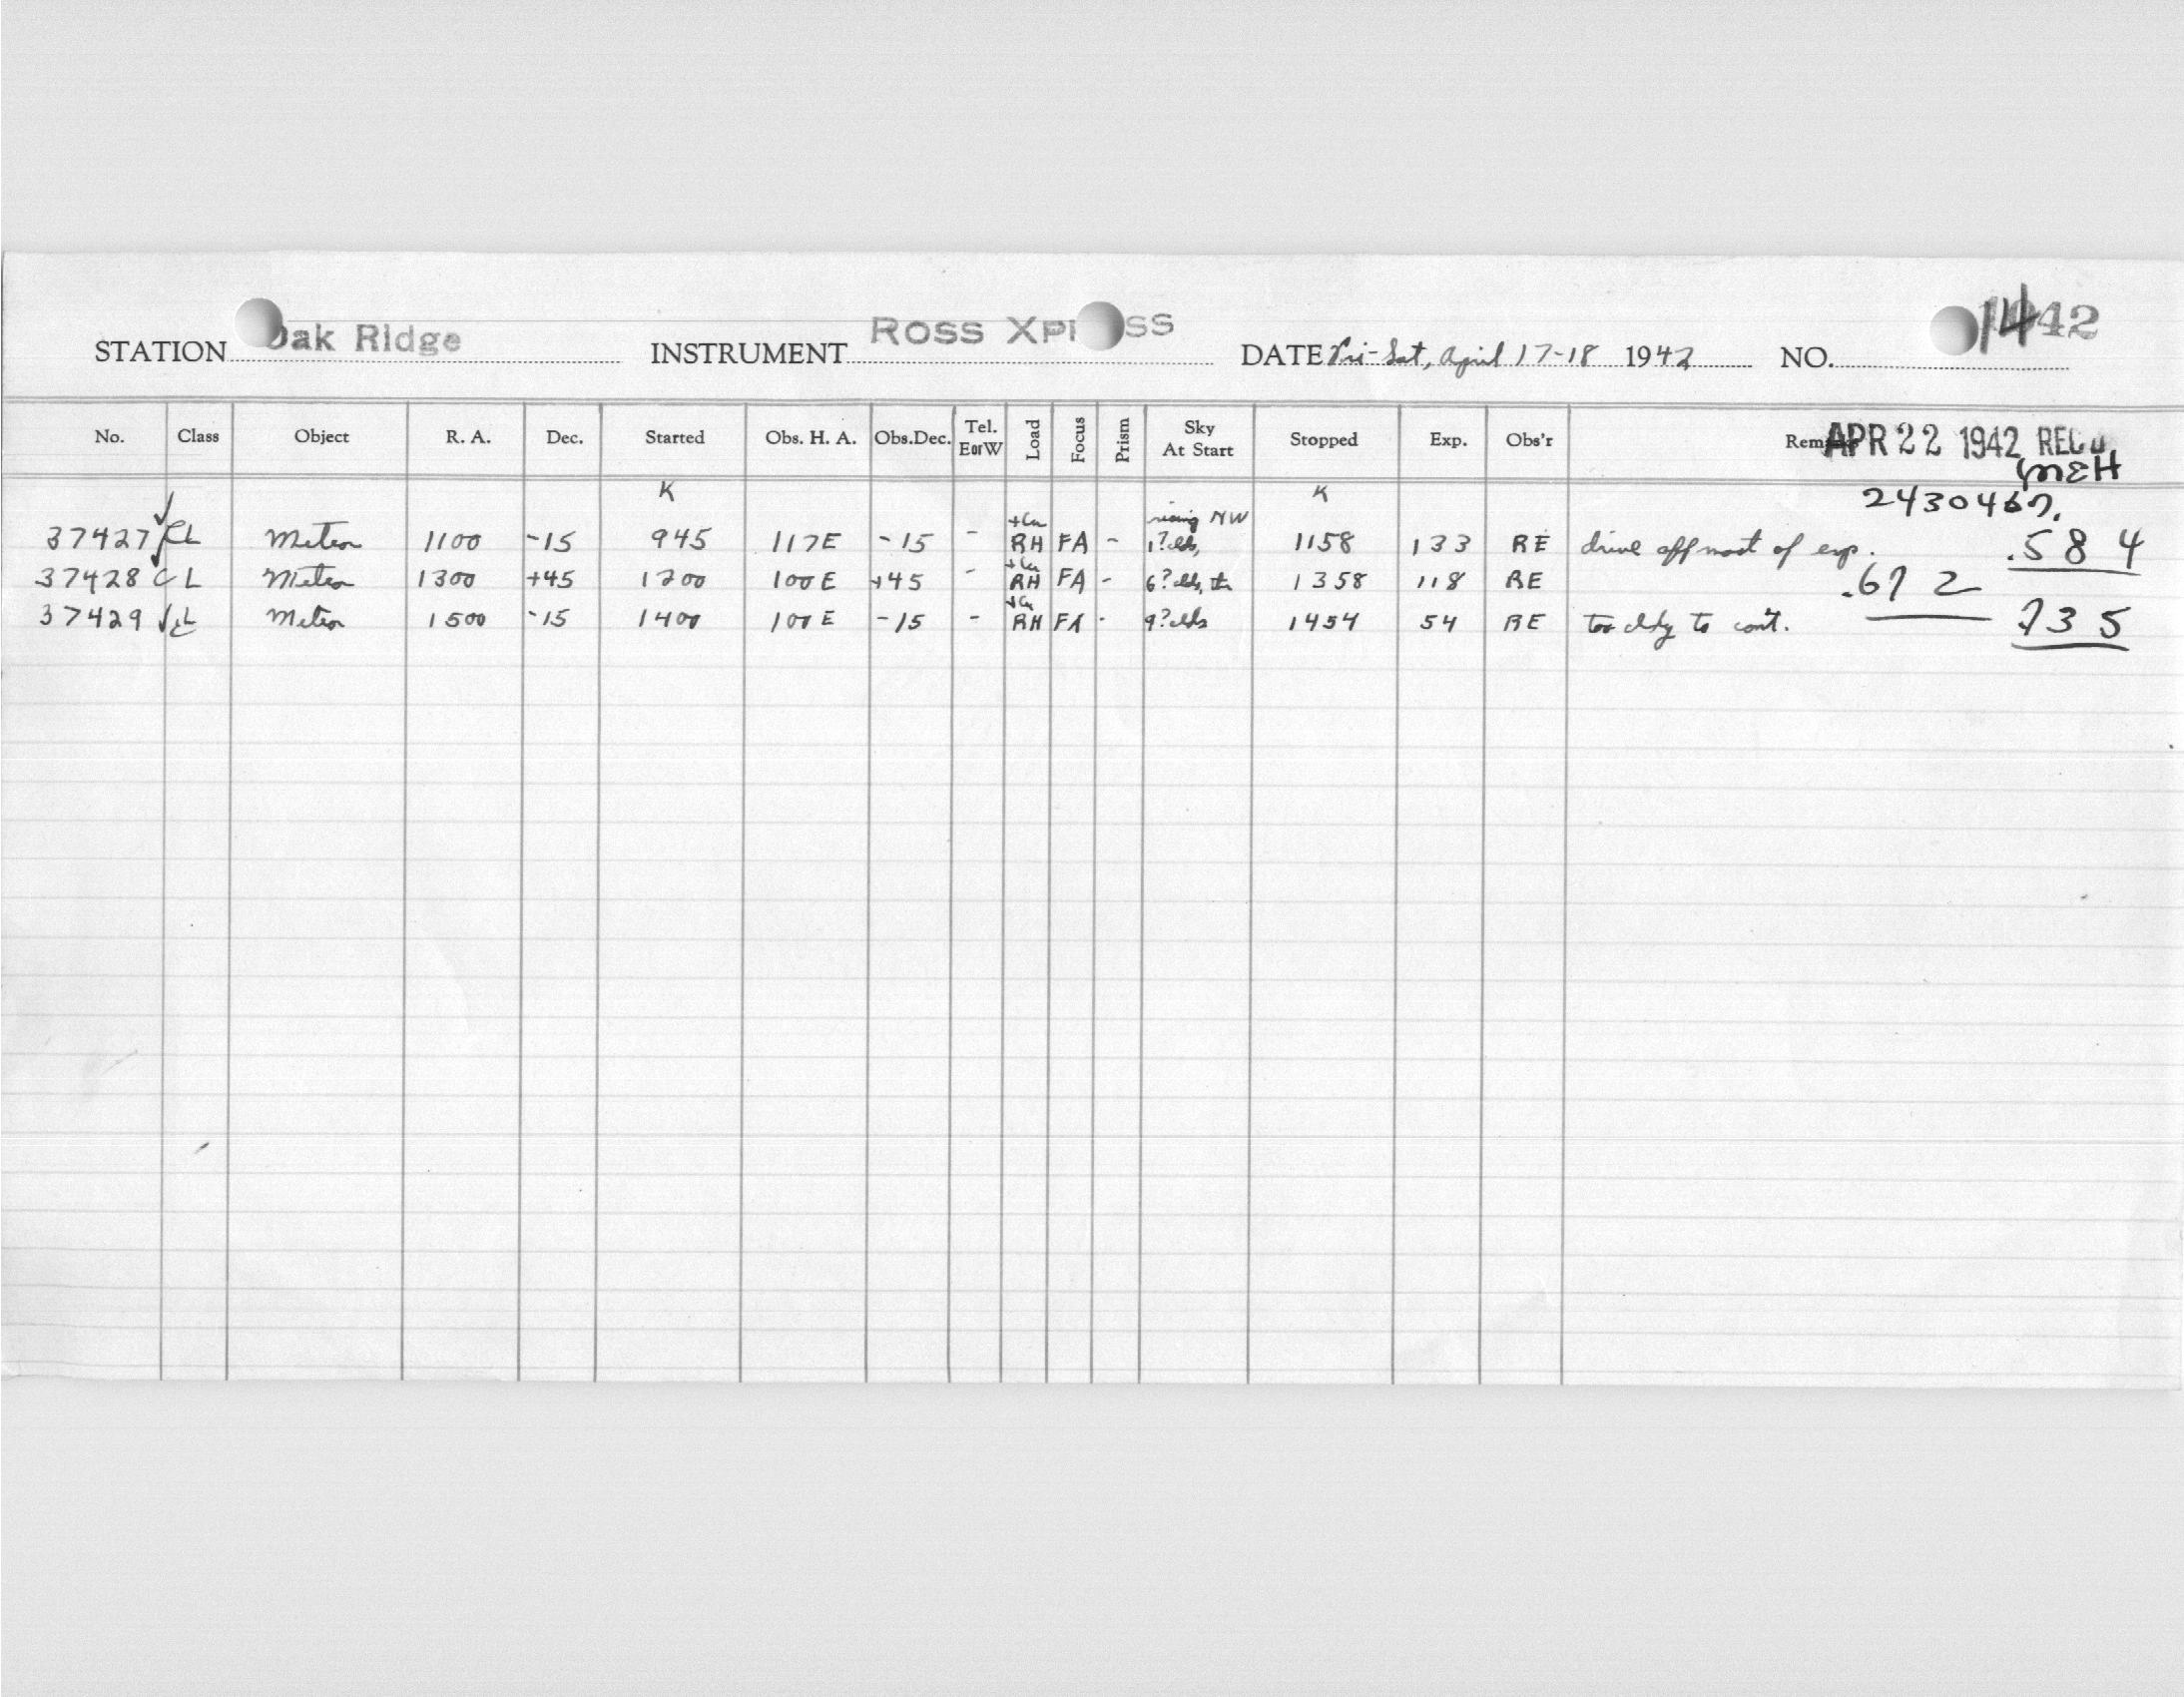 STATION Oak Ridge INSTRUMENT ROSS XPRESS DATE Fri-Sat, April 17-18 1942 NO. 1442
No. Class Object R. A. Dec. Started Obs. H. A. Obs.Dec. Tel. EorW Load Focus Prism Sky At Start Stopped Exp. Obs'r Remarks
APR 22 1942 REC'D
MEH
K K 2430467.
+Cu rising NW
37427 CL Meteor 1100 -15 945 117E -15 - RH FA - 1? clds, 1158 133 RE drive off most of exp. .584
+Cu
37428 CL Meteor 1300 +45 1200 100E +45 - RH FA - 6? clds, th 1358 118 RE .672
+Cu
37429 CL Meteor 1500 -15 1400 100E -15 - RH FA - 9? clds 1454 54 RE too cldy to cont. .735